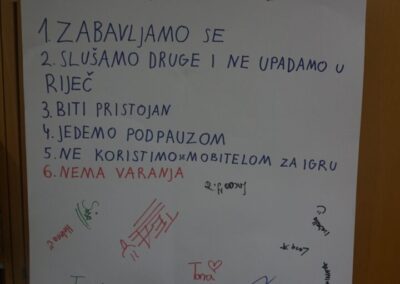 1. ZABAVLJAMO SE
2. SLUŠAMO DRUGE I NE UPADAMO U
RIJEČ
3. BITI PRISTOJAN
4. JEDEMO POD PAUZOM
5. NE KORISTIMO MOBITELOM ZA IGRU
6. NEMA VARANJA
Tona